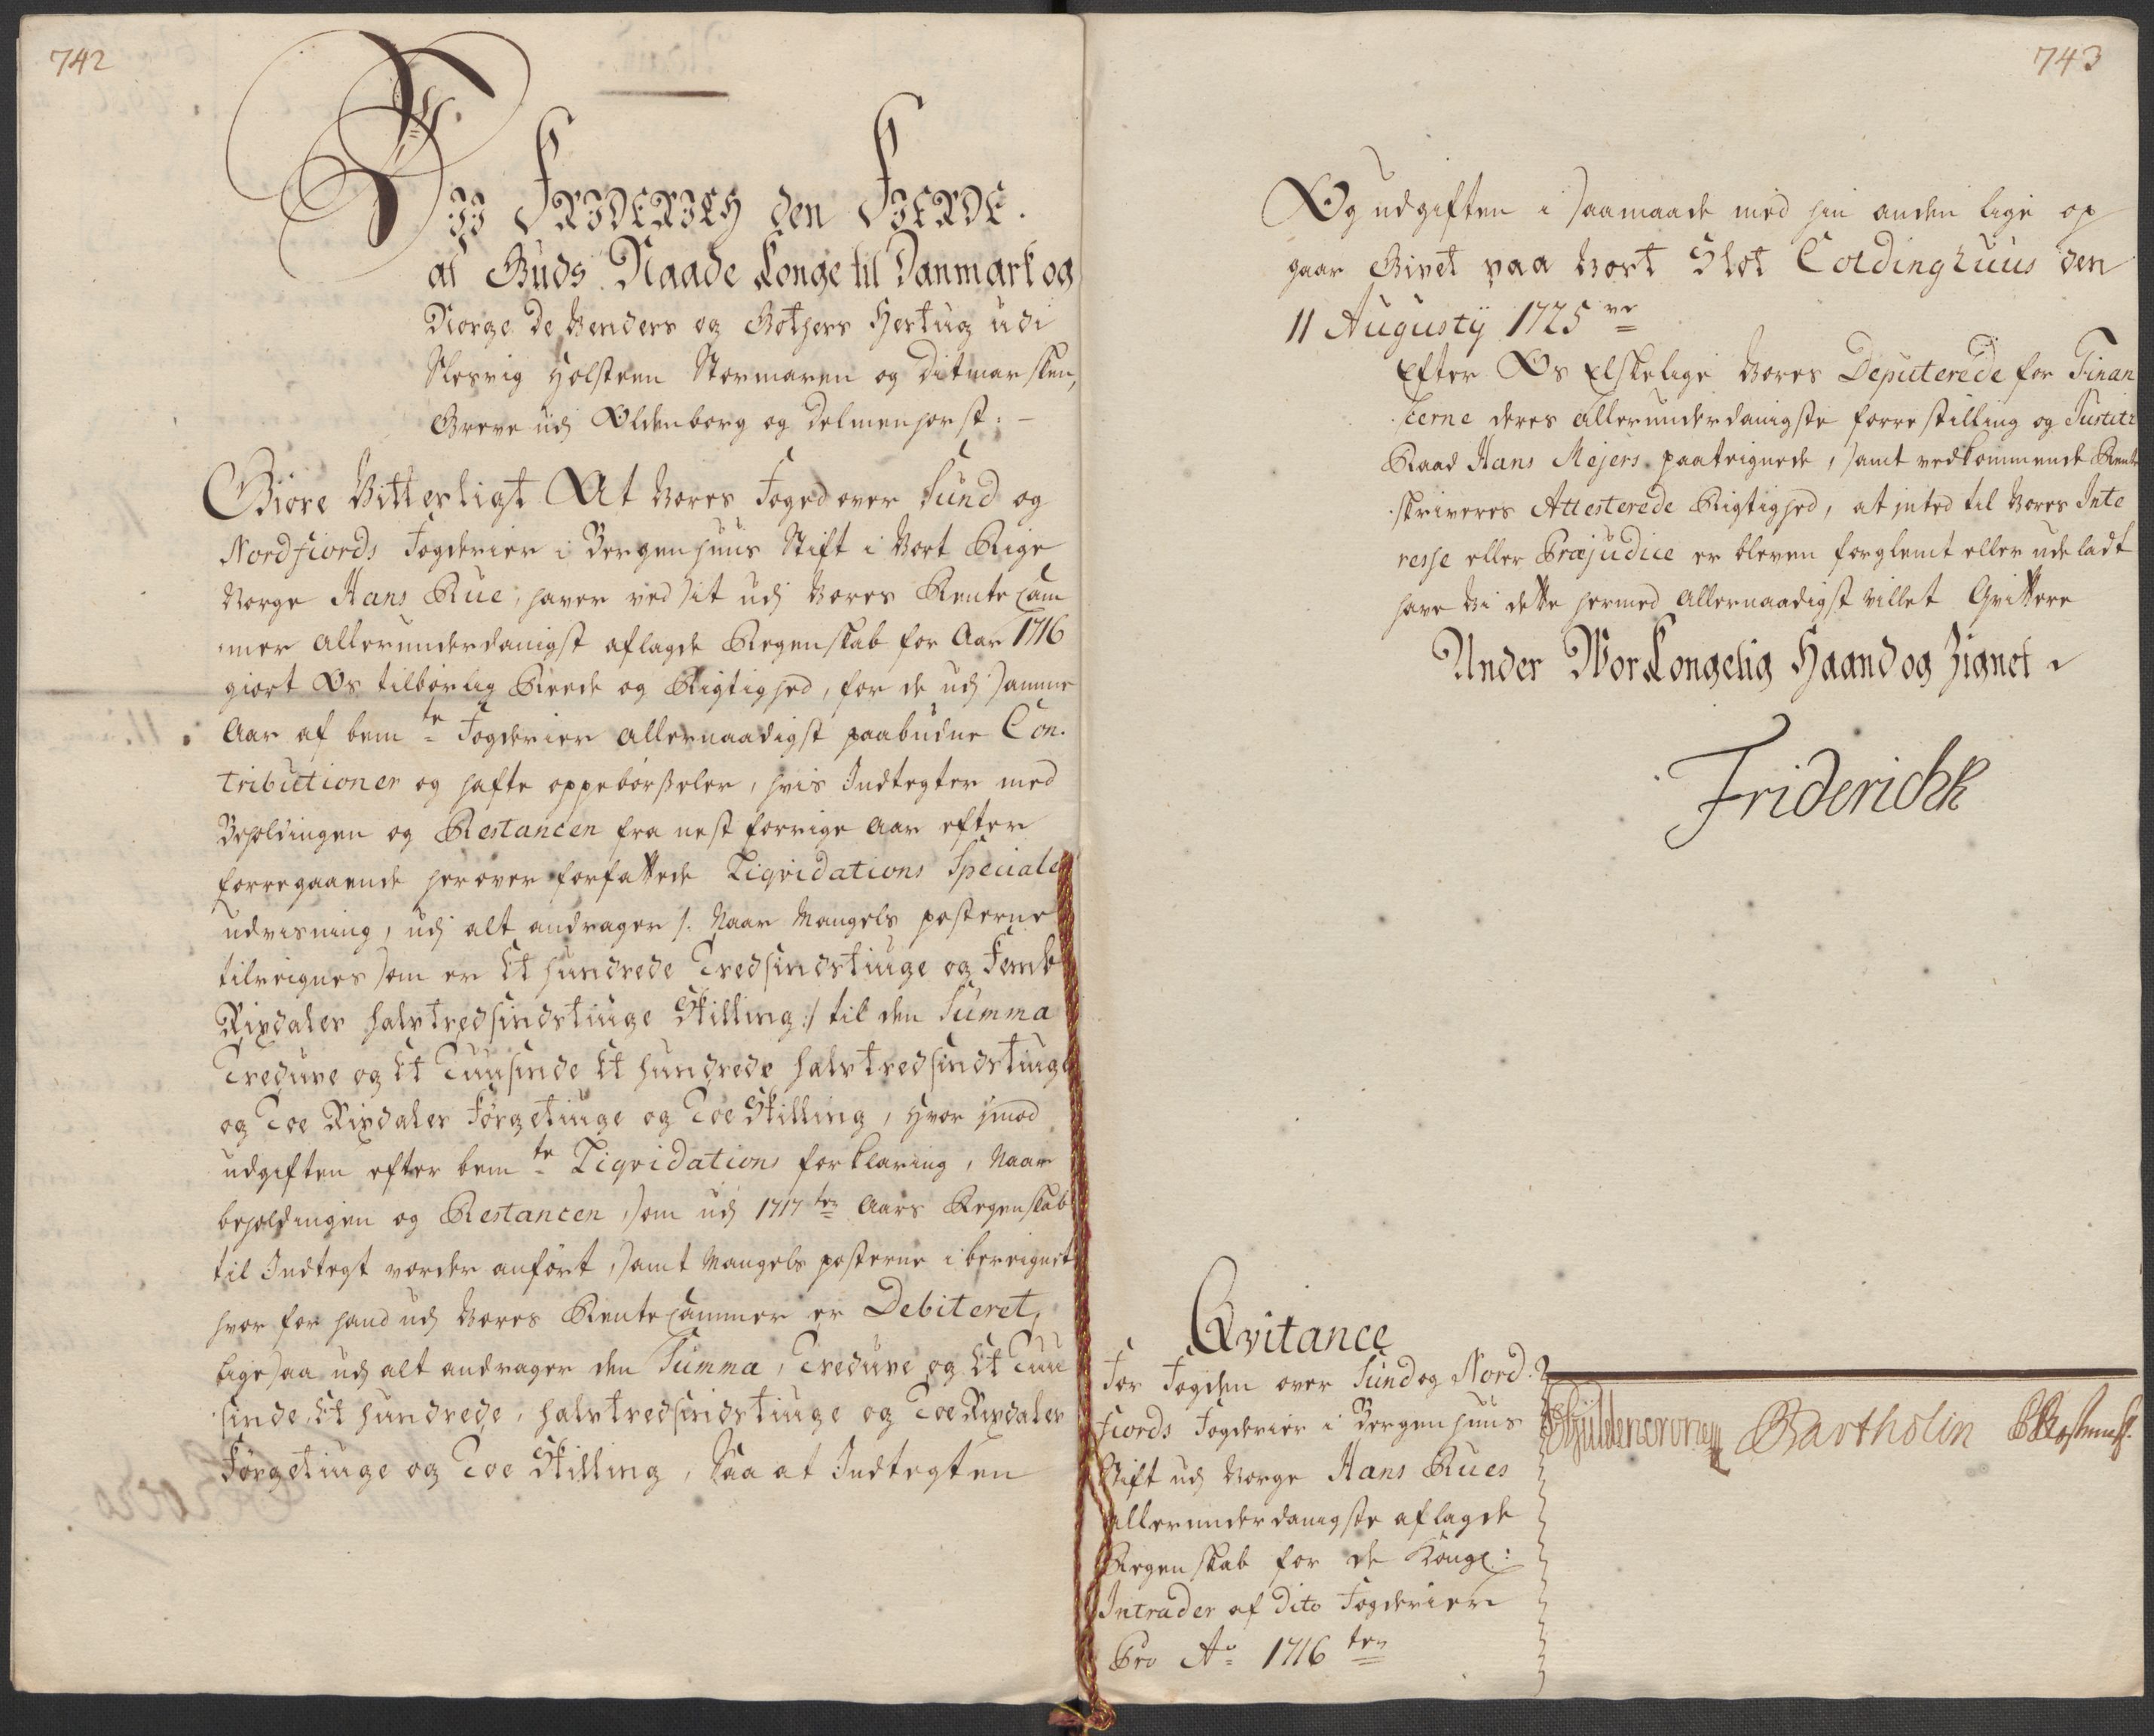 742
Wii FRIDERICH den FIERDE.
af Guds Naade Konge til Danmark og
Norge De Venders og Gothers Hertug udi
Slesvig Holsteen Stormaren og Ditmarsken,
Greve udj Oldenborg og Delmenhorst: –
Giøre Vitterligt At Vores Foged over Sund og
Nordfiords Fogderier i Bergenhuus Stift i Vort Rige
Norge Hans Rue, haver ved sit udj Vores Rente Cam
mer allerunderdanigst aflagde Regenskab for Aar 1716
giort Os tilbørlig Reede og Rigtighed, for de udj samme
Aar af bemte Fogderier allernaadigst paabudne Con.
tributioner og hafte oppebørßeler, hvis Indtegter med
Beholdingen og Restancen fra nest forrige Aar efter
forregaaende herover forfattede Liqvidations Speciale
udvisning, udj alt andrager /: Naar Mangels posterne
tilreignes som er Et hundrede Tredsindstiuge og Femb
Rixdaler halvtredsindstiuge Skilling :/ til den Summa
Treduve og Et Tuusinde Et hundrede halvtredsindstiuge
og Toe Rixdaler Førgetiuge og Toe Skilling, Hvor jmod
udgiften efter bemte Liqvidations forklaring, Naar
beholdingen og Restancen, som udj 1717ten Aars Regenskab
til Indtegt vorder anført, samt Mangels posterne i bereignet
hvor for hand udj Vores Rentecammer er Debiteret,
lige saa udj alt andrager den Summa, Treduve og Et Tuu
sinde, Et hundrede, halvtredsindstiuge og Toe Rixdaler
Førgetiuge og Toe Skilling, Saa at Indtegten
743
Og udgiften i saamaade med hin anden lige op
gaar Givet paa Vort Slot Coldinghuus den
11 Augustij 1725
Efter Os Elskelige Vores Deputerede for Finan
cerne deres allerunderdanigste forrestilling og Justitz
Raad Hans Mejers paateignede, samt vedkommende Rente
skriveres Attesterede Rigtighed, at inted til Vores Inte
resse eller Præjudice er bleven forglemt eller udeladt
have Vi dette hermed Allernaadigst villet Qvittere
Under Vor Kongelig Haand og Zignet
Friderich R
Qvitance
For Fogden over Sund og Nord
fiords Fogderier i Bergenhuus
Stift udj Norge Hans Rues
allerunderdanigste aflagde
Regenskab for de Kongl:
Intrader af dito Fogderier
Pro Ao 1716ten
Güldencrone Bartholin